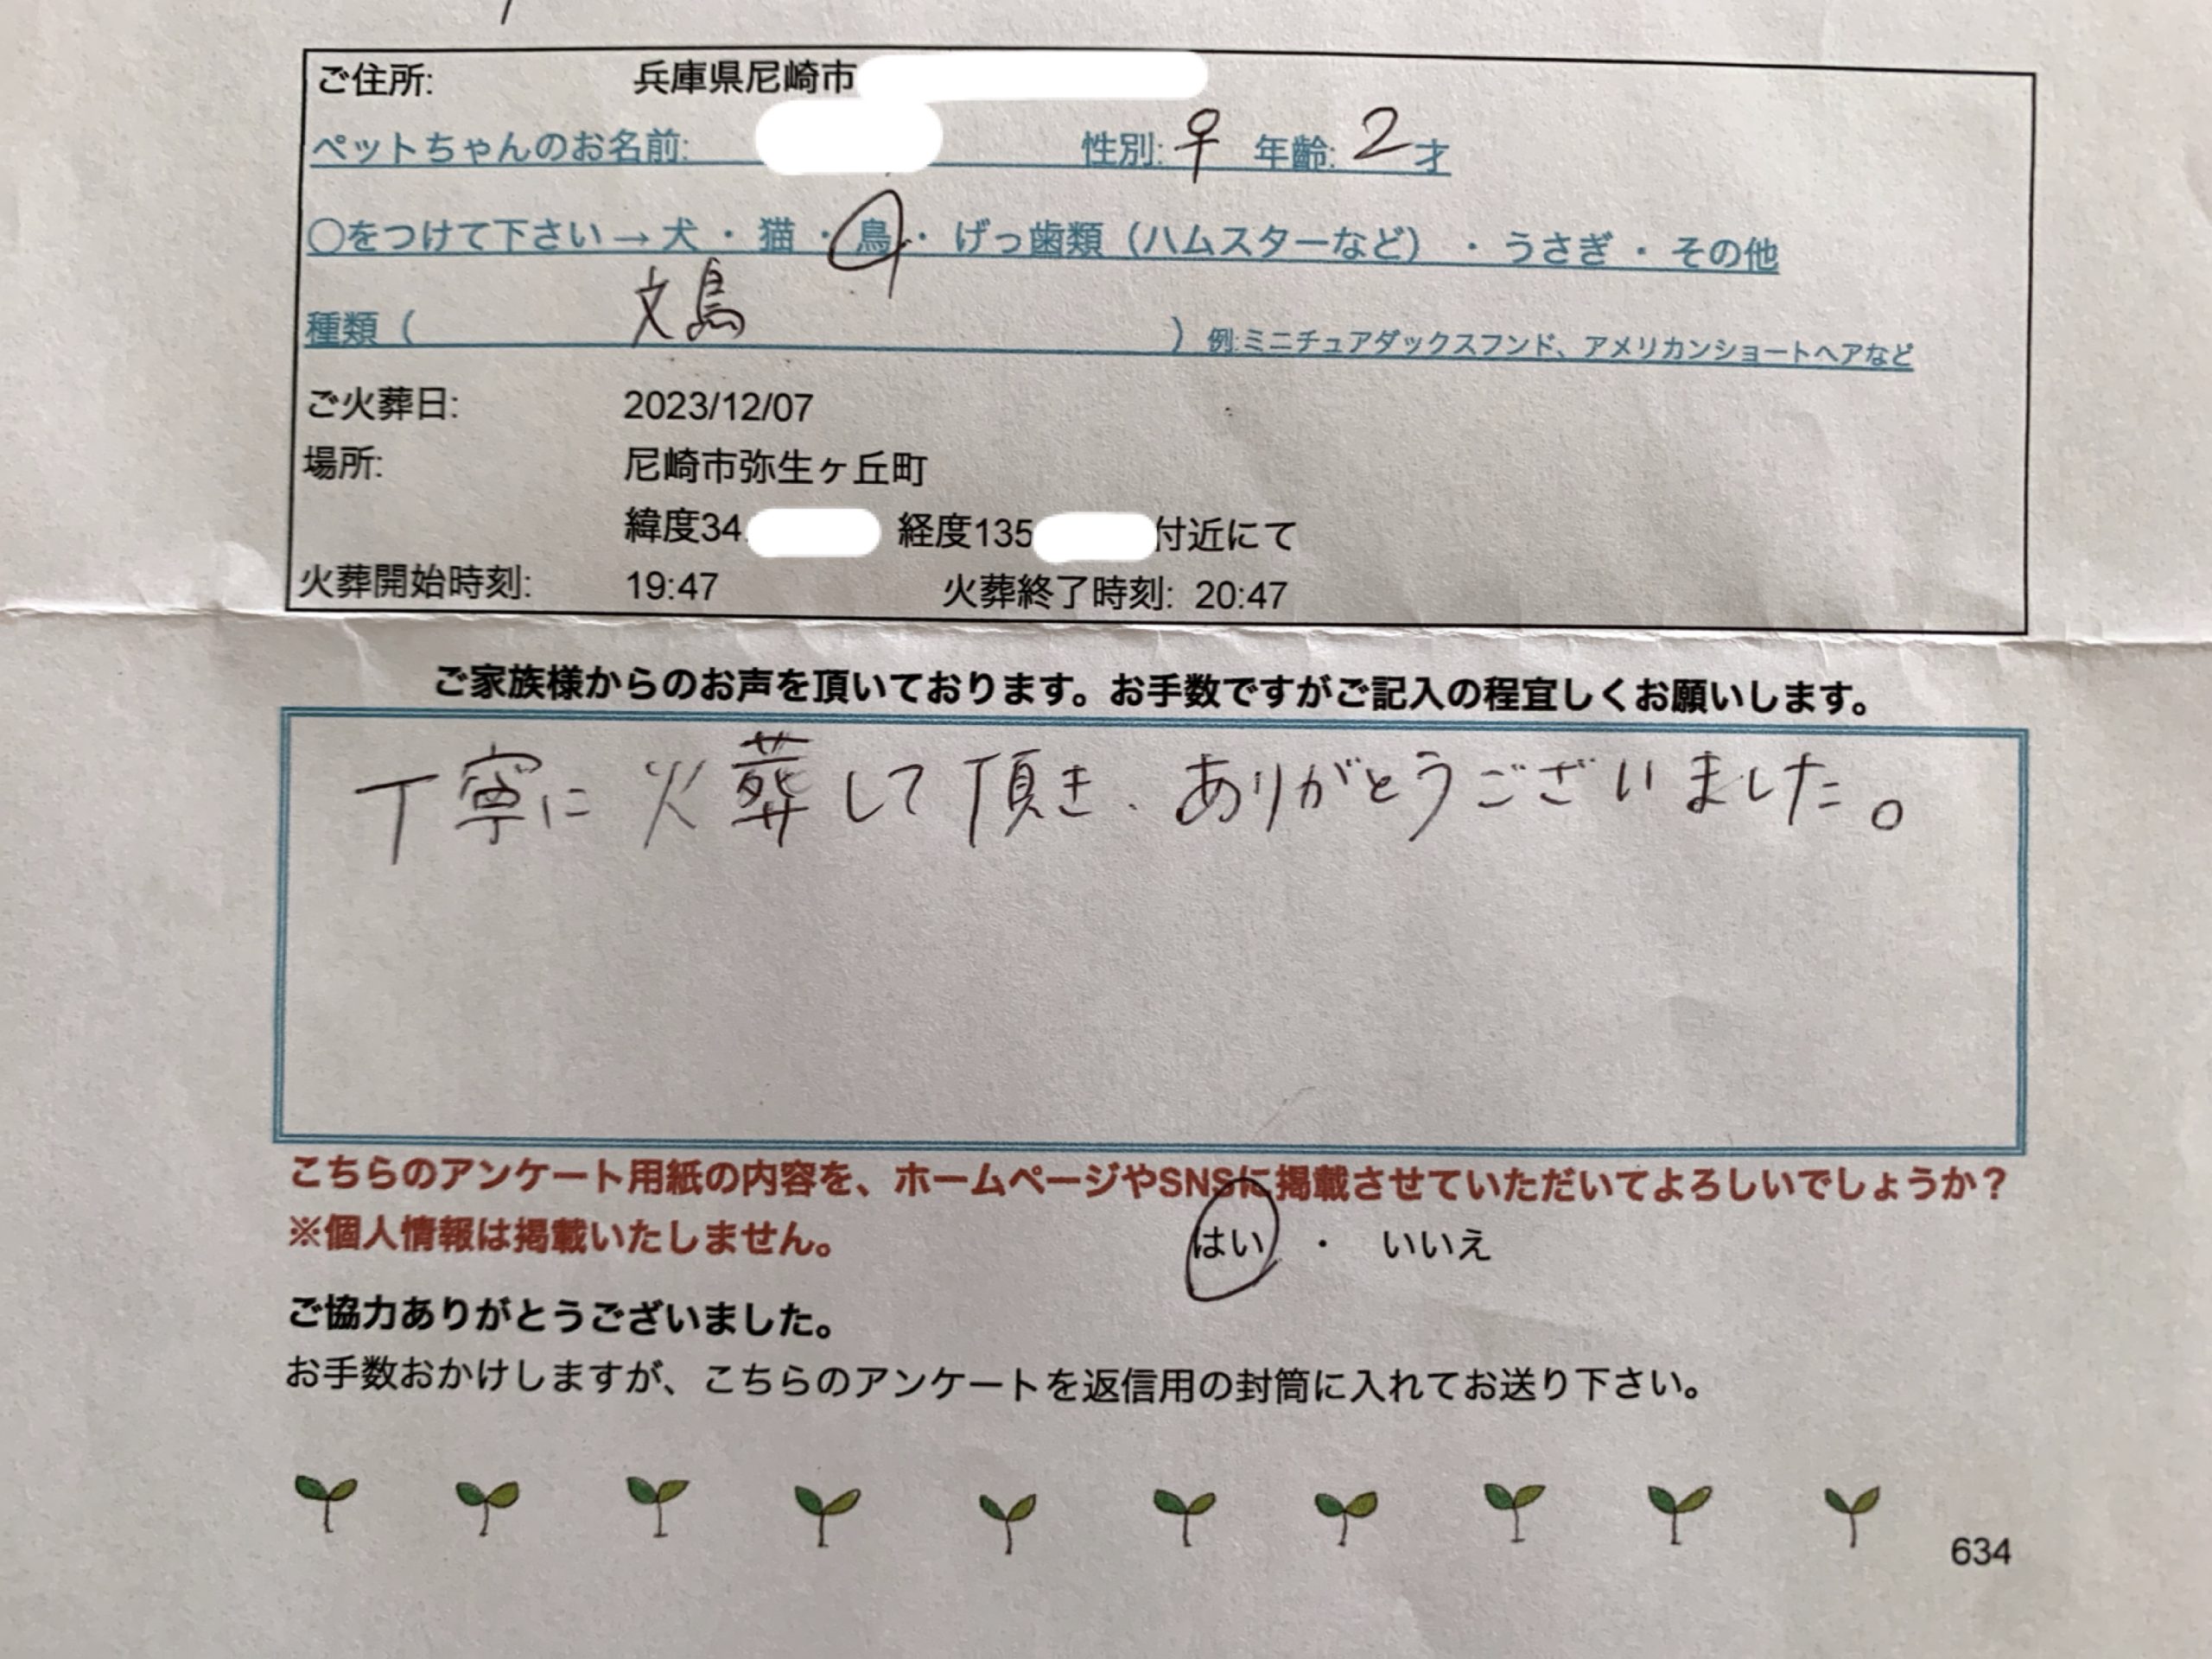 ご住所: 兵庫県尼崎市
ペットちゃんのお名前: 性別: ♀ 年齢: 2才
○をつけて下さい→犬 ・ 猫 ・ 鳥 ・ げっ歯類（ハムスターなど） ・ うさぎ ・ その他
種類（ 文鳥 ）例:ミニチュアダックスフンド、アメリカンショートヘアなど
ご火葬日: 2023/12/07
場所: 尼崎市弥生ヶ丘町
緯度34. 経度135 付近にて
火葬開始時刻: 19:47 火葬終了時刻: 20:47
ご家族様からのお声を頂いております。お手数ですがご記入の程宜しくお願いします。
丁寧に火葬して頂き、ありがとうございました。
こちらのアンケート用紙の内容を、ホームページやSNSに掲載させていただいてよろしいでしょうか？
※個人情報は掲載いたしません。 はい ・ いいえ
ご協力ありがとうございました。
お手数おかけしますが、こちらのアンケートを返信用の封筒に入れてお送り下さい。
634